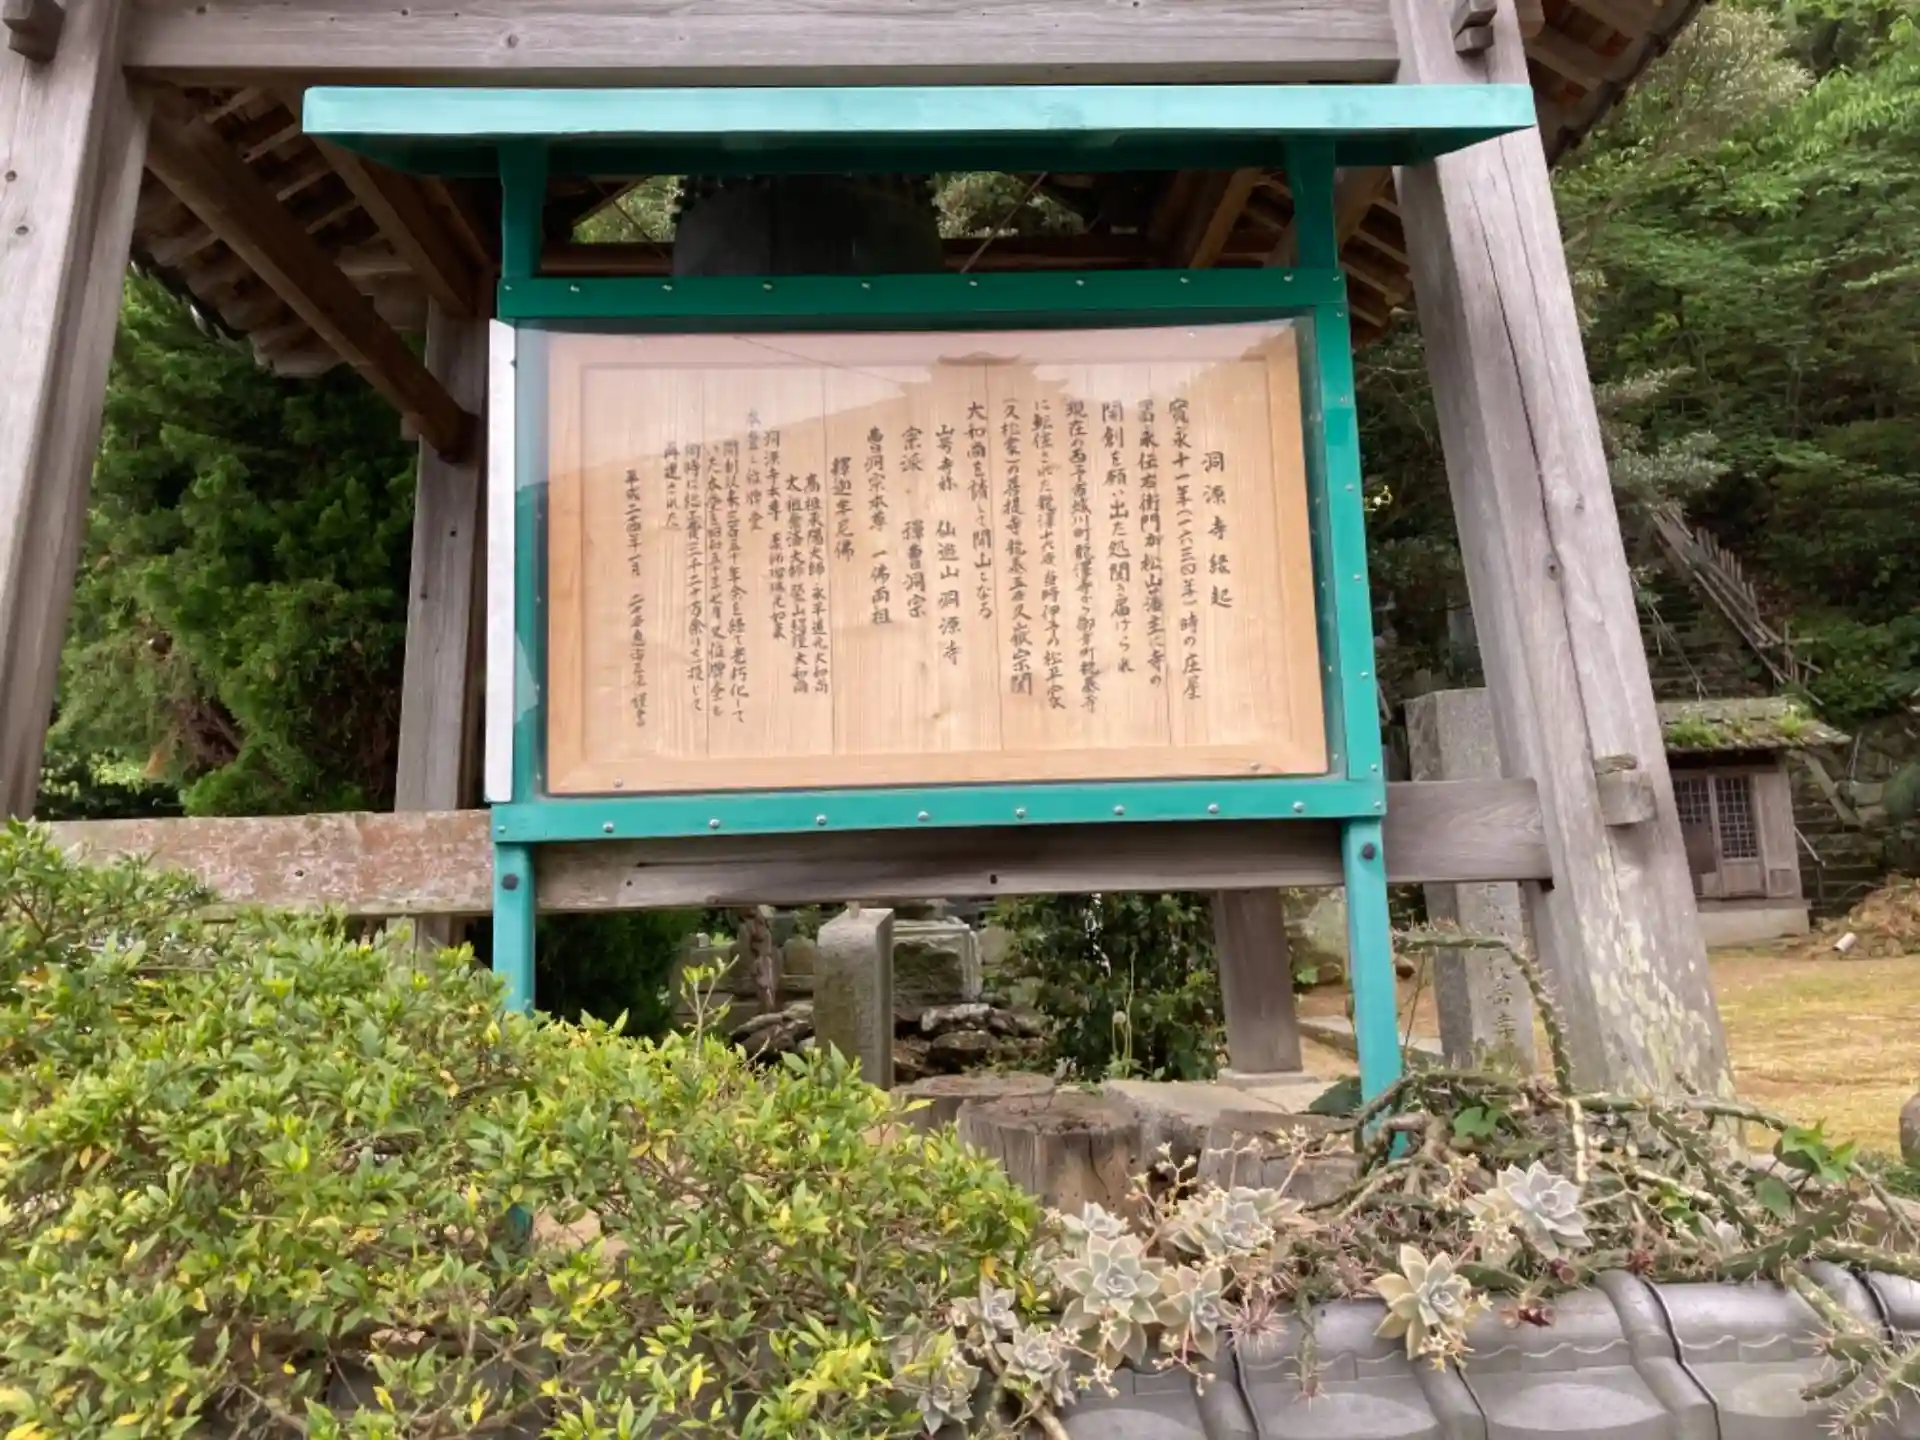 洞源寺縁起
寛永十一年(一六三四年)時の庄屋
冨永伝右衛門が松山藩主に寺の
開創を願い出た処聞き届けられ
現在の西予市城川町龍澤寺から御幸町龍泰寺
に転住された龍澤十六夜当時伊予の松平家
(久松家)の菩提寺龍泰五世久嶽宗関
大和尚を請して開山となる
山号寺称 仙遊山洞源寺
宗派 禅曹洞宗
曹洞宗本尊 一佛両祖
釋迦牟尼佛
高祖承陽大師 永平道元大和尚
太祖常済大師 瑩山紹瑾大和尚
洞源寺本尊 薬師瑠璃光如来
本堂 位牌堂
開創以来三百五十年余を経て老朽化して
いた本堂を昭和五十 年七月又位牌堂も
同時に総工費三千二十万余りを投じて
再建された
平成二十四年一月 二十 謹書